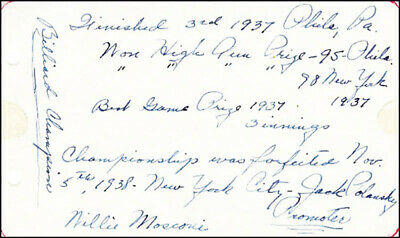 Billiard Champion
Finished 3rd 1937 Phila, Pa.
Won High Run Prize - 95 - Phila.
" " " " 98 New York
Best Game Prize 1937 1937
3 innings
Championship was forfeited Nov.
5th, 1938 - New York City - Jack Polansky
Willie Mosconi Promoter